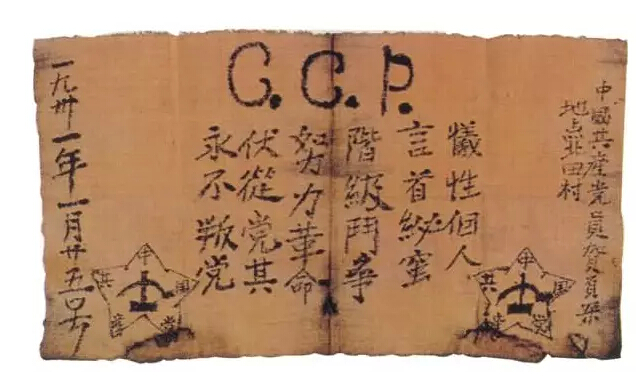 C.C.P.
中國共產党員賀頁朵
地点北田村
犧性個人
言首秘蜜
階級鬥争
努力革命
伏從党其
永不叛党
一九卅一年一月廿五号
中国共產党
中国共產党